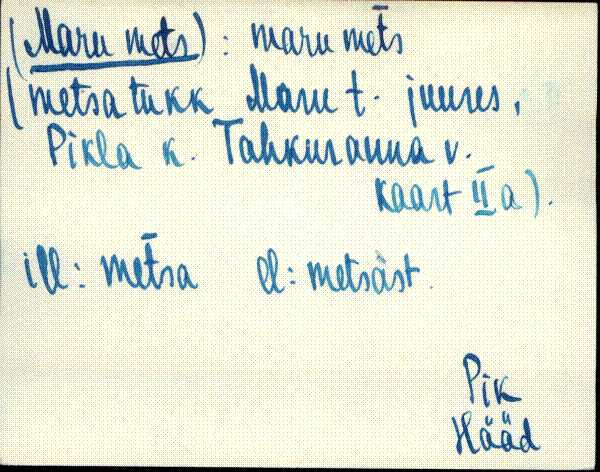 (Maru mets) : maru met̄s
(metsa tukk Maru t. juures,
Pikla k. Tahkuranna v.
kaart II a).
ill: met̄sa el: metsàst.
Pik
Hääd